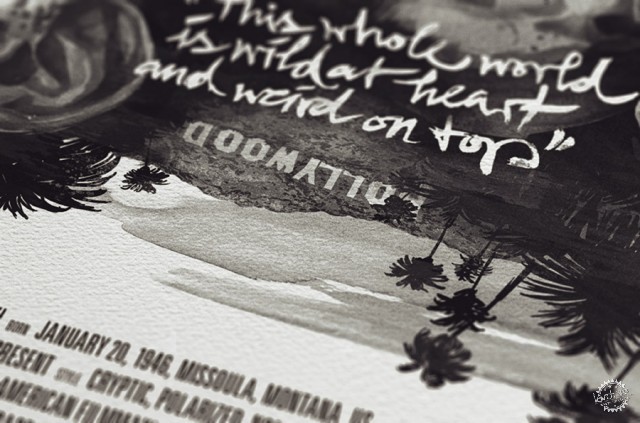 "This whole world
is wild at heart
and weird on top"
HOLLYWOOD
BORN JANUARY 20, 1946, MISSOULA, MONTANA, US
PRESENT CRYPTIC, POLARIZED,
AMERICAN FILMMAKER